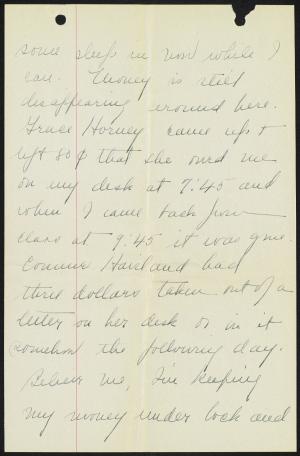 some sleep in now while I
can. Money is still
disappearing around here.
Grace Horney came up &
left 80¢ that she owed me
on my desk at 7:45 and
when I came back from
class at 9:45 it was gone.
Connie Haviland had
three dollars taken out of a
letter on her desk or in it
(somehow the following day.
Believe me, I'm keeping
my money under lock and